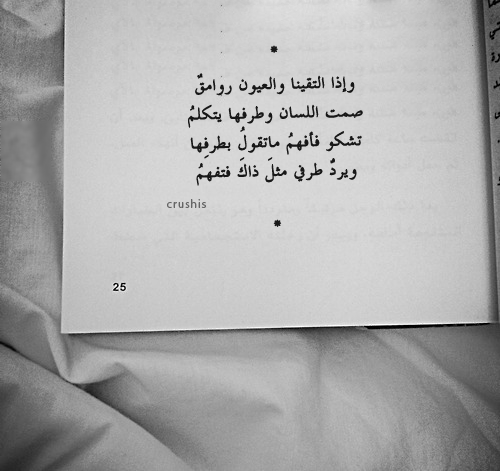 *
وإذا التقينا والعيون روامقٌ
صمت اللسان وطرفها يتكلمُ
تشكو فأفهمُ ماتقولُ بطرفِها
ويردُّ طرفي مثلَ ذاكَ فتفهمُ
crushis
*
25